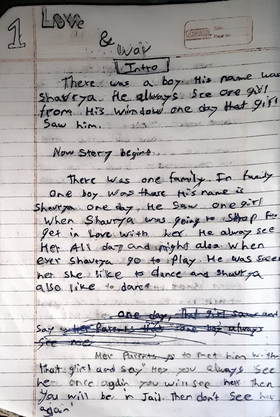 1
Love
& War
Intro
There was a boy. His name was
Shaurya. He always See one girl
from His window one day that girl
Saw him.
Now Story begins...
There was one family. In family
one boy was there His name is
Shaurya one day. He Saw one girl
When Shaurya was going to Shop
get in Love with her. He alway see
Her All day and night also when
ever Shaurya go to play. He was see
her she like to dance and Shaurya
also like to dance
One day, That girl Came and
say Her Parents that boy always
See me
Her Parents to meet him with
that girl and say" Hey you always See
her once again you will see her then
You will be in Jail. Then don't See her
again"